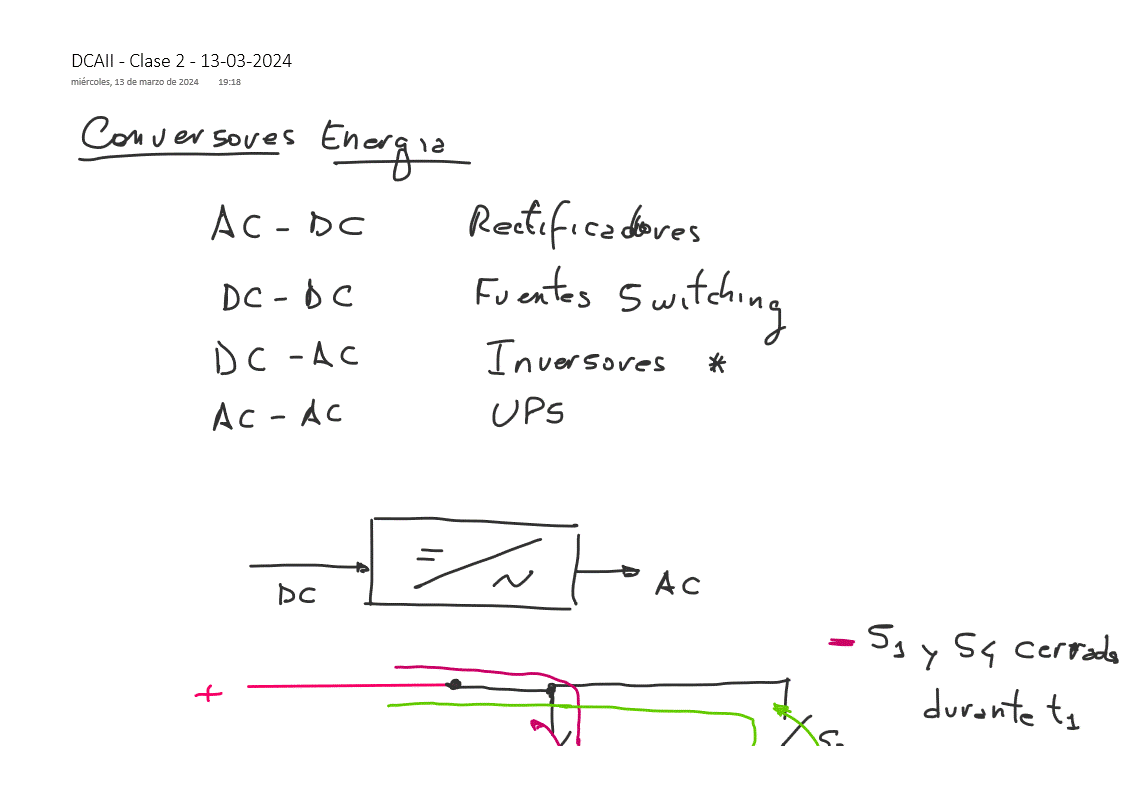 DCAII - Clase 2 - 13-03-2024
miércoles, 13 de marzo de 2024 19:18
Conversores Energia
AC - DC Rectificadores
DC - DC Fuentes Switching
DC - AC Inversores *
AC - AC UPS
= / ~
DC
AC
- S1 y S4 cerrada
durante t1
+